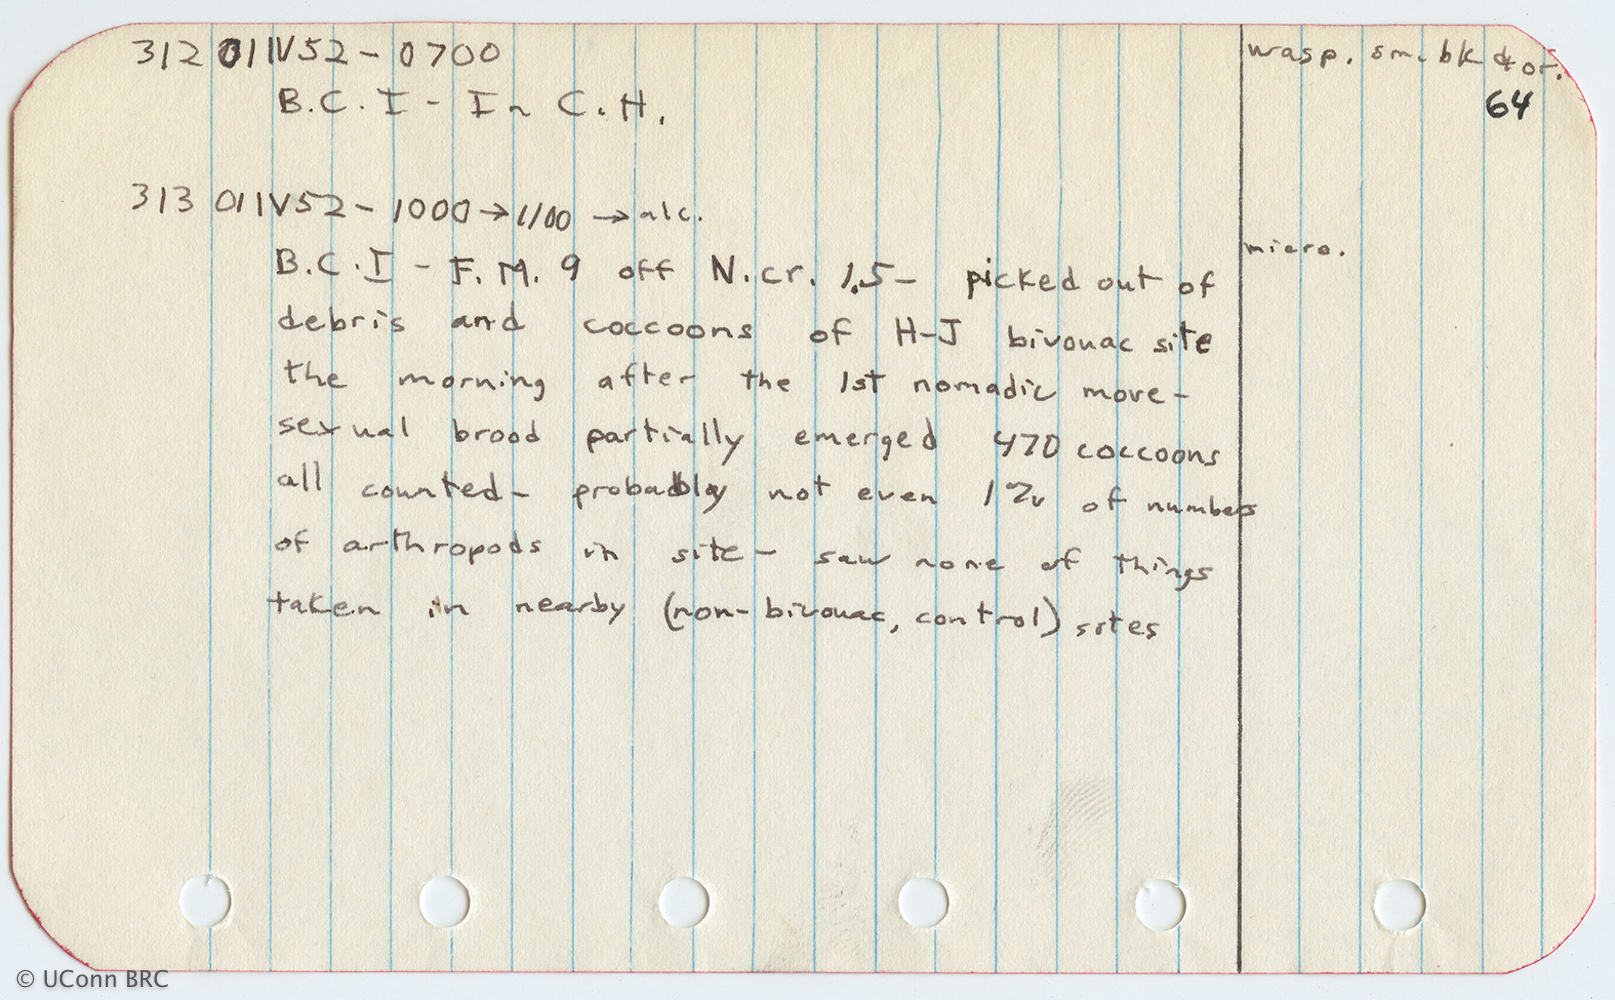 312 01IV52 - 0700 wasp. sm. bk & or.
B.C.I - In C.H. 64
313 01IV52 - 1000 → 1100 → alc.
micro.
B.C.I - F.M. 9 off N.cr. 1.5 - picked out of
debris and coccoons of H-J bivouac site
the morning after the 1st nomadic move -
sexual brood partially emerged 470 coccoons
all counted - probably not even 1% of numbers
of arthropods in site - saw none of things
taken in nearby (non-bivouac, control) sites
© UConn BRC